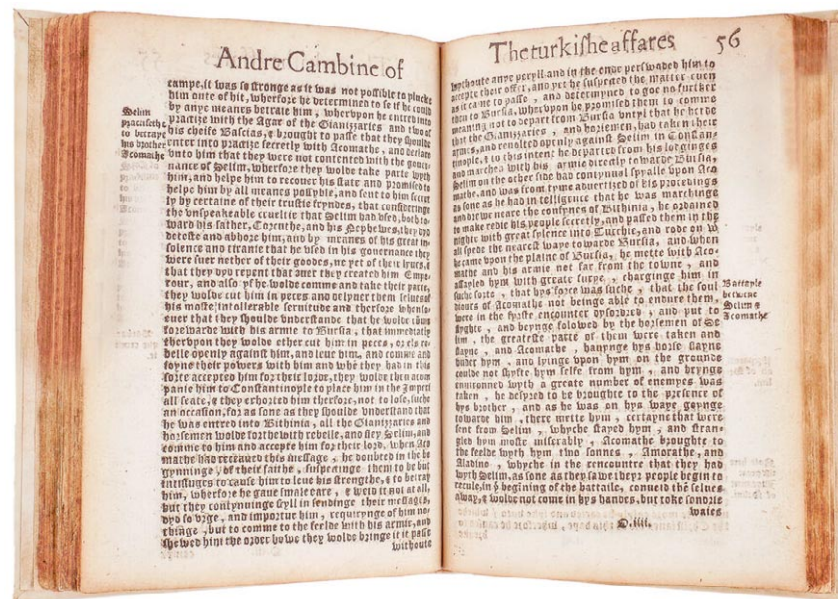 Andre Cambine of
campe, it was so stronge as it was not possible to plucke
him oute of hit, wherfore he determined to se if he could
by anye meanes betraie him, wherupon he entred into
practize with the Agar of the Gianizzaries and two of
his cheife Bascias, & brought to passe that they shoulde
enter into practize secretly with Acomathe, and declare
vnto him that they were not contented with the gouer-
nance of Selim, wherfore they wolde take parte wyth
him, and helpe him to recouer his state and promised to
helpe him by all meanes possyble, and sent to him secret
ly by certaine of their trustie fryndes, that consideringe
the vnspeakeable crueltie that Selim had vsed, both to-
ward his father, Corcuthe, and his Nephewes, they dyd
deteste and abhorre him, and by meanes of his great in-
solence and tiranie that he vsed in his gouernance they
were suer nether of their goodes, ne yet of their lyues,
that they dyd repent that euer they created him Empe-
rour, and also yf he wolde comme and take their parte,
they wolde cut him in peces and delyuer them selues of
his moste intollerable seruitude and therfore whenso-
euer that they shoulde vnderstande that he wolde come
forewarde with his armie to Bursia, that immediatly
therupon they wolde ether cut him in peces, or els re-
belle openly against him, and leue him, and comme and
ioyne their powers with him and whē they had in this
sorte accepted him for their lord, they wolde then accom
panie him to Constantinople to place him in the Imperi
all seate, & they exhorted him therfore, not to lose, suche
an occasion, for as sone as they shoulde vnderstand that
he was entred into Bithinia, all the Gianizzaries and
horsemen wolde forthewith rebelle, and fley Selim, and
comme to him and accepte him for their lord. when Aco
mathe had receaued this message, he doubted in the be
gynninge, of their faithe, suspectinge them to be but
intisinges to cause him to leue his strengthe, & to betray
him, wherfore he gaue smale eare, & weid it not at all,
but they contynninge styll in sendinge their messages,
dyd so vrge, and importue him, requirynge of him no-
thinge, but to comme to the feelde with his armie, and
shewed him the order howe they wolde bringe it to passe
withoute
Selim
practisethe
to betraye
his brother
Acomathe
The turkishe affares 56
wythoute anye peryll and in the ende perswaded him to
accepte their offer, and yet he suspected the matter euen
as it came to passe, and determyned to goe no further
then to Bursia, wherupon he promised them to comme
meaning not to depart from Bursia vntyl that he herde
that the Gianizzaries, and horsemen, had taken their
armes, and reuolted openly against Selim in Constan-
tinople, & to this intent he departed from his lodginges
and marched with his armie directly towarde Bursia,
Selim on the other side had contynual spyalle vpon Aco
mathe, and was from tyme aduertized of his procedings
as sone as he had intelligence that he was marchinge
and drewe neare the confynes of Bithinia, he ordained
to make redie his people secretly, and passed them in the
nighte with great sylence into Turchie, and rode on w
all spede the nearest waye towarde Bursia, and when
he came vpon the plaine of Bursia, he mette with Aco-
mathe and his armie not far from the towne, and
assayled hym with greate furye, charginge him in
suche sorte, that hys force was suche, that the soul
diours of Acomathe not beinge able to endure them,
were in the fyrste encounter dysordred, and put to
flyghte, and beynge folowed by the horsemen of Se
lim, the greateste parte of them were taken and
slayne, and Acomathe, hauynge hys horse slayne
vnder hym, and lyinge vpon hym on the grounde
could not shyfte hym selfe from hym, and beynge
enuironned wyth a greate number of enemyes was
taken, he desyred to be broughte to the presence of
hys brother, and as he was on hys waye goynge
towarde him, there mette hym, certayne that were
sent from Selim, whyche stayed hym, and stran-
gled hym moste miserably, Acomathe broughte to
the feelde wyth hym two sonnes, Amorathe, and
Aladino, whyche in the rencountre that they had
wyth Selim, as sone as they sawe theyr people begin to
recule, in þ begining of the battaile, conueid thē selues
away, & wolde not come in hys handes, but toke sondrie
waies
D.iiii.
Battayle
betwene
Selim &
Acomathe